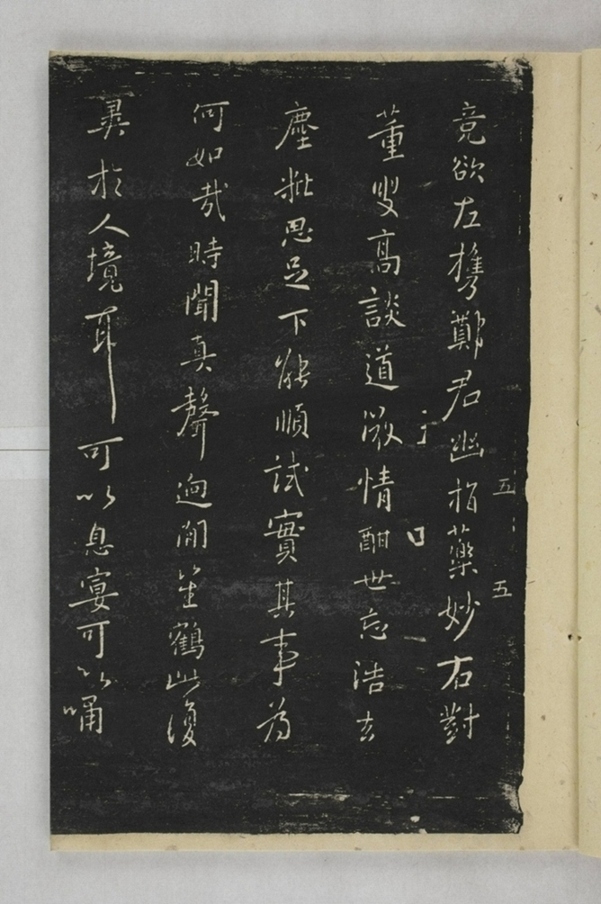 竟欲左携鄭君幽指藥妙右對
董叟高談道術情酣世忘浩玄
塵紲思足下能順試實其事為
何如哉時聞真聲迥闹笙鶴此復
異於人境耳可以息宴可以誦
五 五